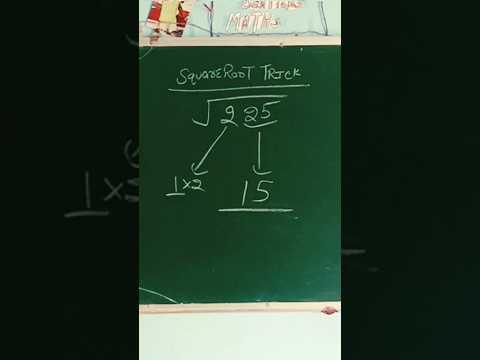 MATHS
SQUARE ROOT TRICK
√2 25
1×2 15